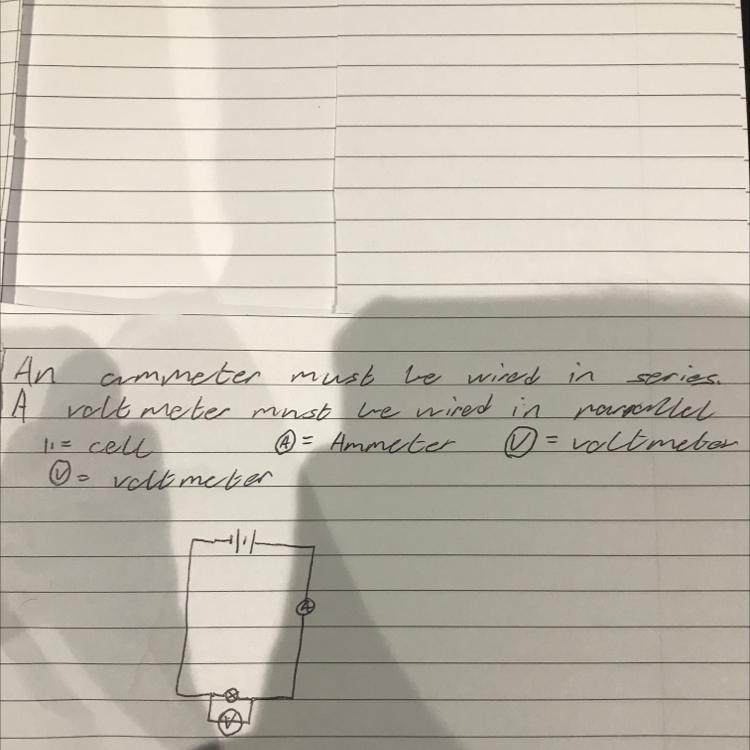 An ammeter must be wired in series.
A voltmeter must be wired in parallel
= cell Ⓐ = Ammeter Ⓥ = voltmeter
Ⓥ = voltmeter
A
V